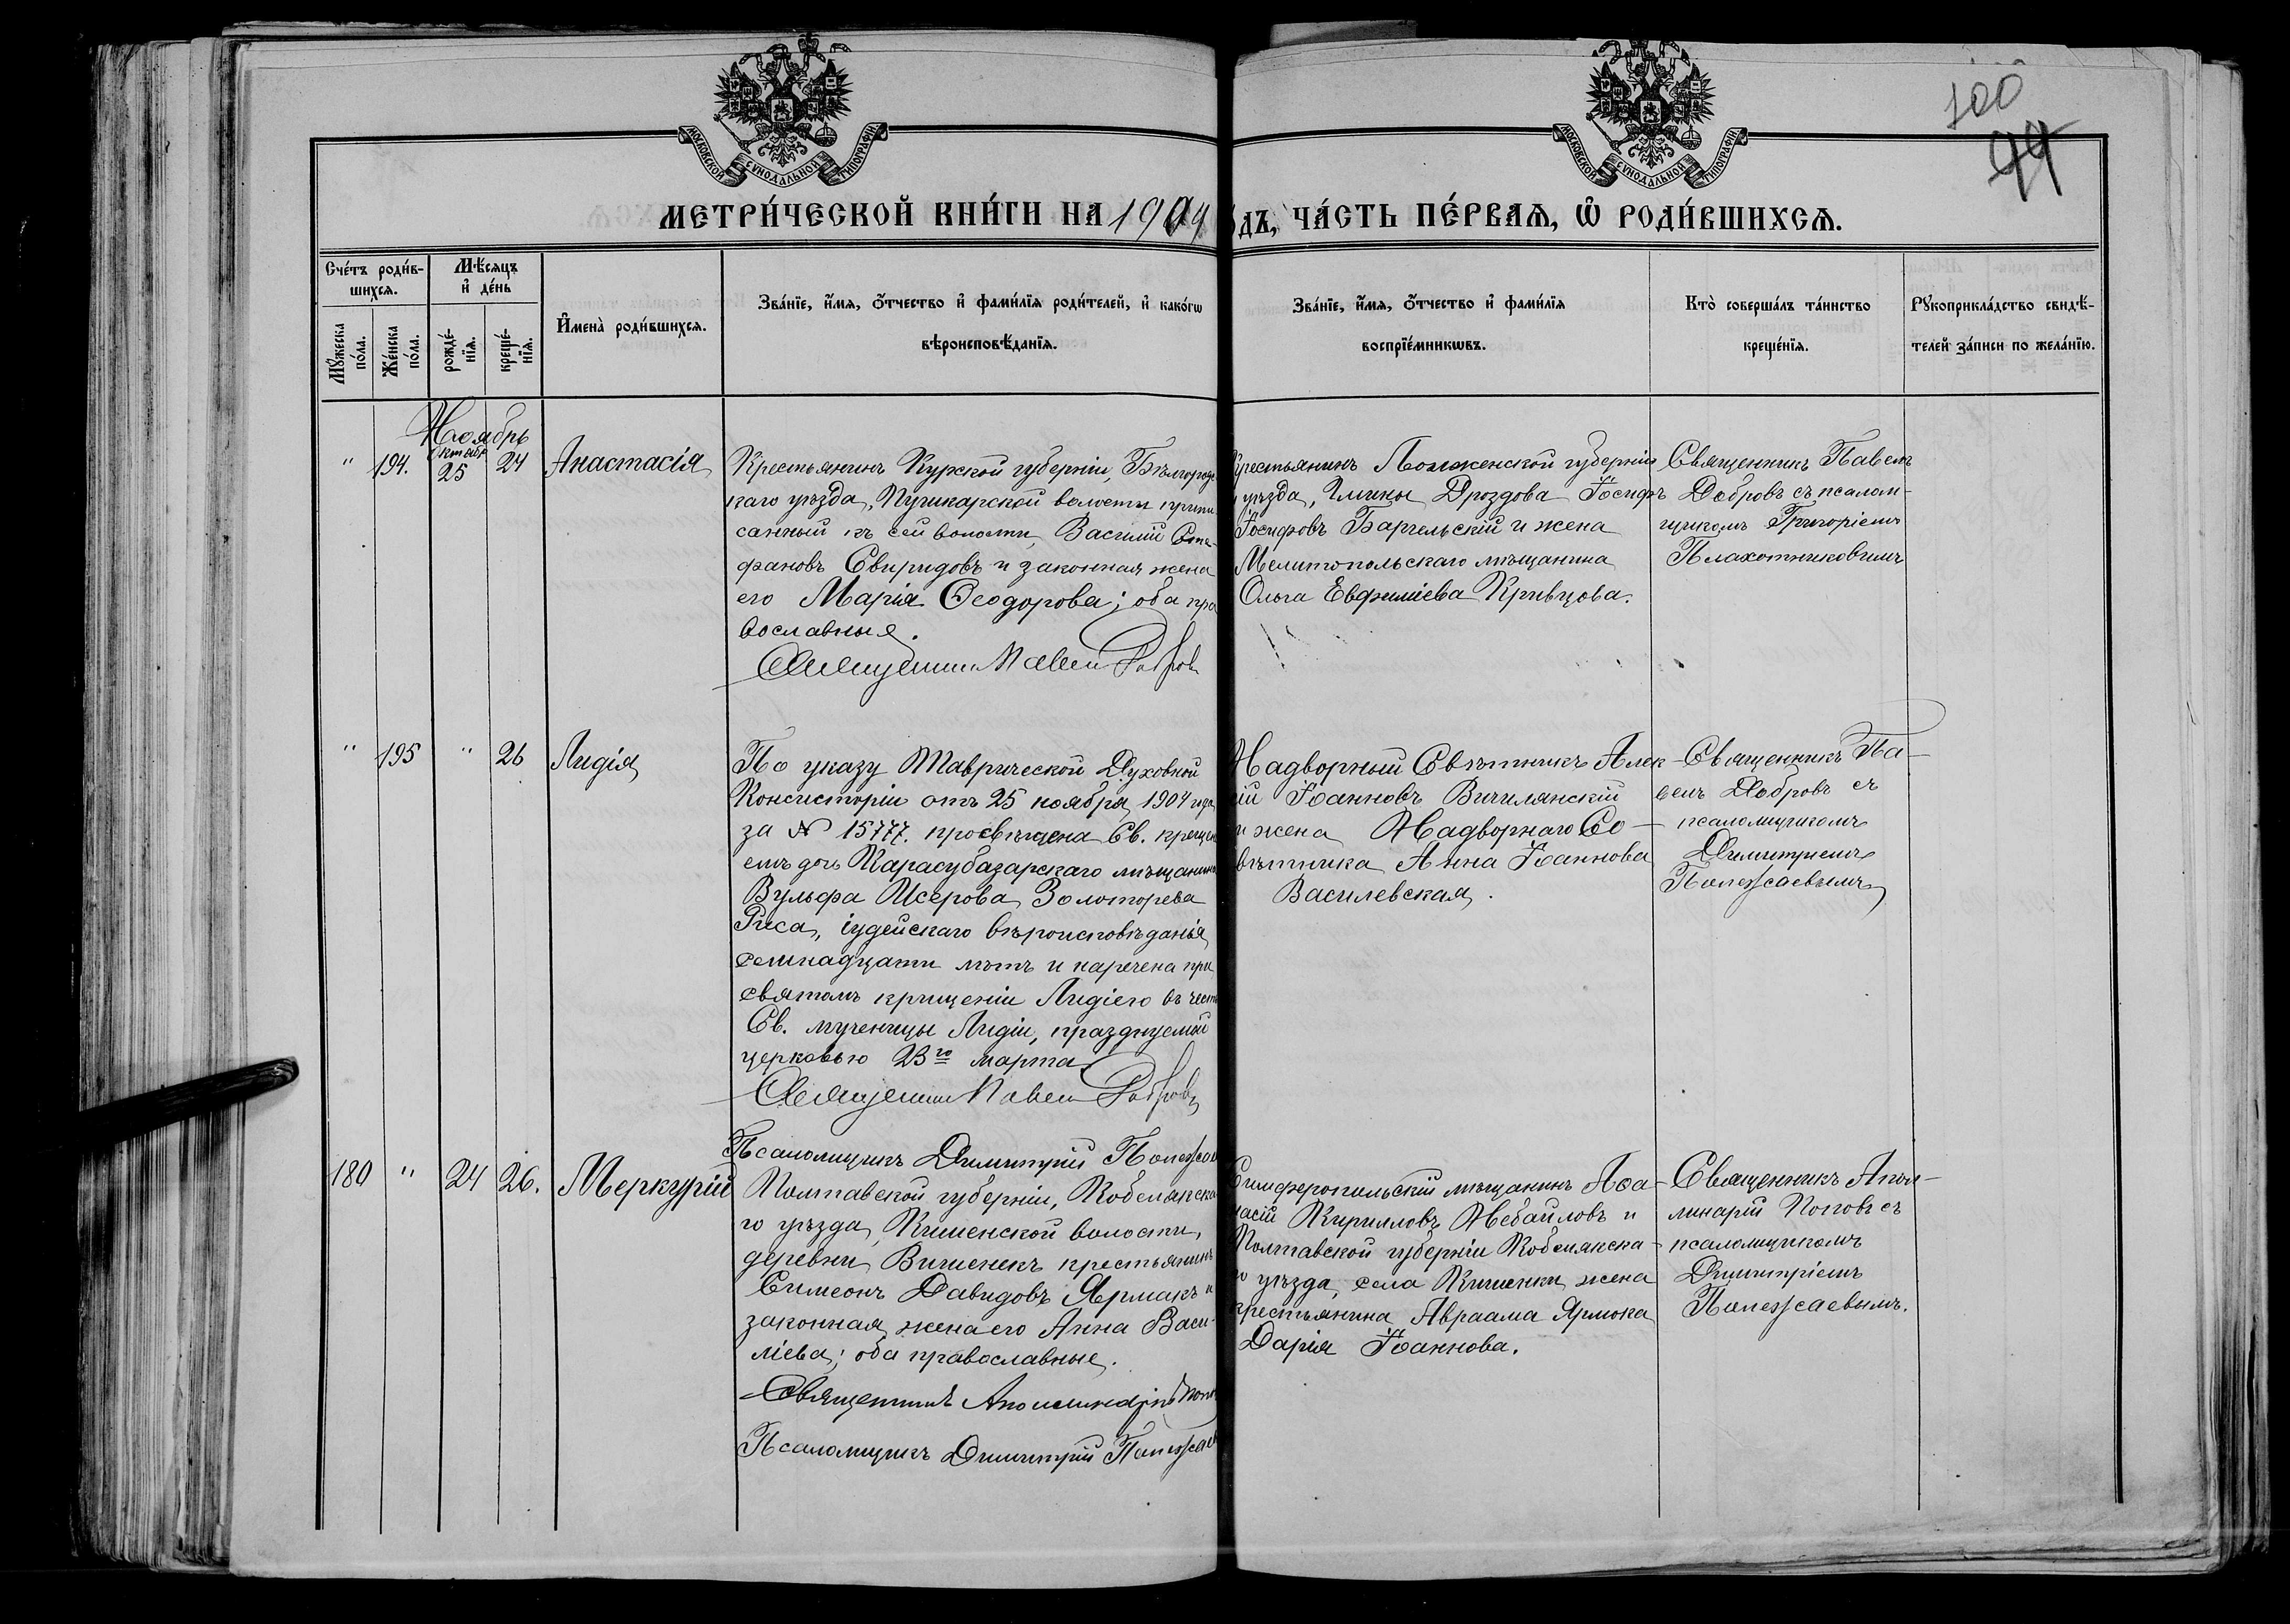 100
44
МОСКОВСКОЙ СѴНОДАЛЬНОЙ ТИПОГРАФІИ
МОСКОВСКОЙ СѴНОДАЛЬНОЙ ТИПОГРАФІИ
МЕТРИ́ЧЕСКОЙ КНИ́ГИ НА 1904
ДЪ, ЧА́СТЬ ПЕ́РВАѦ, Ѡ РОДИ́ВШИХСѦ.
Сче́тъ роди́в-
шихсѧ.
Мѣ́сѧцъ
и҆ де́нь
Мꙋ́жеска
по́ла.
Же́нска
по́ла.
рожде́-
нїѧ.
креще́-
нїѧ.
И҆мена̀ роди́вшихсѧ.
Зва́нїе, и҆́мѧ, ѻ҆́тчество и҆ фами́лїѧ роди́телей, и҆ како́гѡ
вѣроисповѣ́данїѧ.
Зва́нїе, и҆́мѧ, ѻ҆́тчество и҆ фами́лїѧ
воспрїе́мникѡвъ.
Кто̀ соверша́лъ та́инство
креще́нїѧ.
Рꙋкоприкла́дство свидѣ́-
телей за́писи по жела́нїю.
Ноябрь
" 194. Октябр 25 24 Анастасія
Крестьянинъ Курской губерніи, Бѣлгород
каго уѣзда, Пушкарской волости припи
санный къ сей волости, Василій Сте-
фановъ Свиридовъ и законная жена
его Марія Ѳеодорова; оба пра
вославные.
Священник Павел Добров
Крестьянинъ Ломженской губерніи
уѣзда, Гмины Дроздова Іосифъ
Іосифовъ Баргельскій и жена
Мелитопольскаго мѣщанина
Ольга Евфиміева Кривцова.
Священникъ Павелъ
Добровъ съ псалом-
щикомъ Григоріемъ
Плахотниковымъ
" 195 " 26 Лидія
По указу Таврической Духовной
Консисторіи отъ 25 ноября 1904 года
за № 15777. просвѣщена Св. крещен
емъ дочь Карасубазарскаго мѣщанина
Вульфа Исерова Золоторева
Риса, іудейскаго вѣроисповѣданія
семнадцати лѣтъ и наречена при
святомъ крещеніи Лидіею въ честь
Св. мученицы Лидіи, празднуемой
церковью 23го марта
Священник Павел Добровъ
Надворный Совѣтникъ Алек
ій Іоанновъ Вичилянскій
и жена Надворнаго Со-
вѣтника Анна Іоаннова
Василевская.
Священникъ Па-
велъ Добровъ съ
псаломщикомъ
Димитріемъ
Псаломщикъ Димитрій
180 " 24 26. Меркурій
Полтавской губерніи, Кобелякска
го уѣзда, Кишенской волости,
деревни Вишенекъ крестьянинъ
Симеонъ Давидовъ Ярмакъ и
законная жена его Анна Васи-
ліева; оба православные.
Священникъ Аполлинарій Попов
Псаломщикъ Димитрій
Симферопольскій мѣщанинъ Аѳа-
насій Кирилловъ Небайловъ и
Полтавской губерніи Кобелякска-
го уѣзда, села Кишенки жена
крестьянина Авраама Ярмока
Дарія Іоаннова.
Священникъ Апол-
линарій Поповъ съ
псаломщикомъ
Димитріемъ